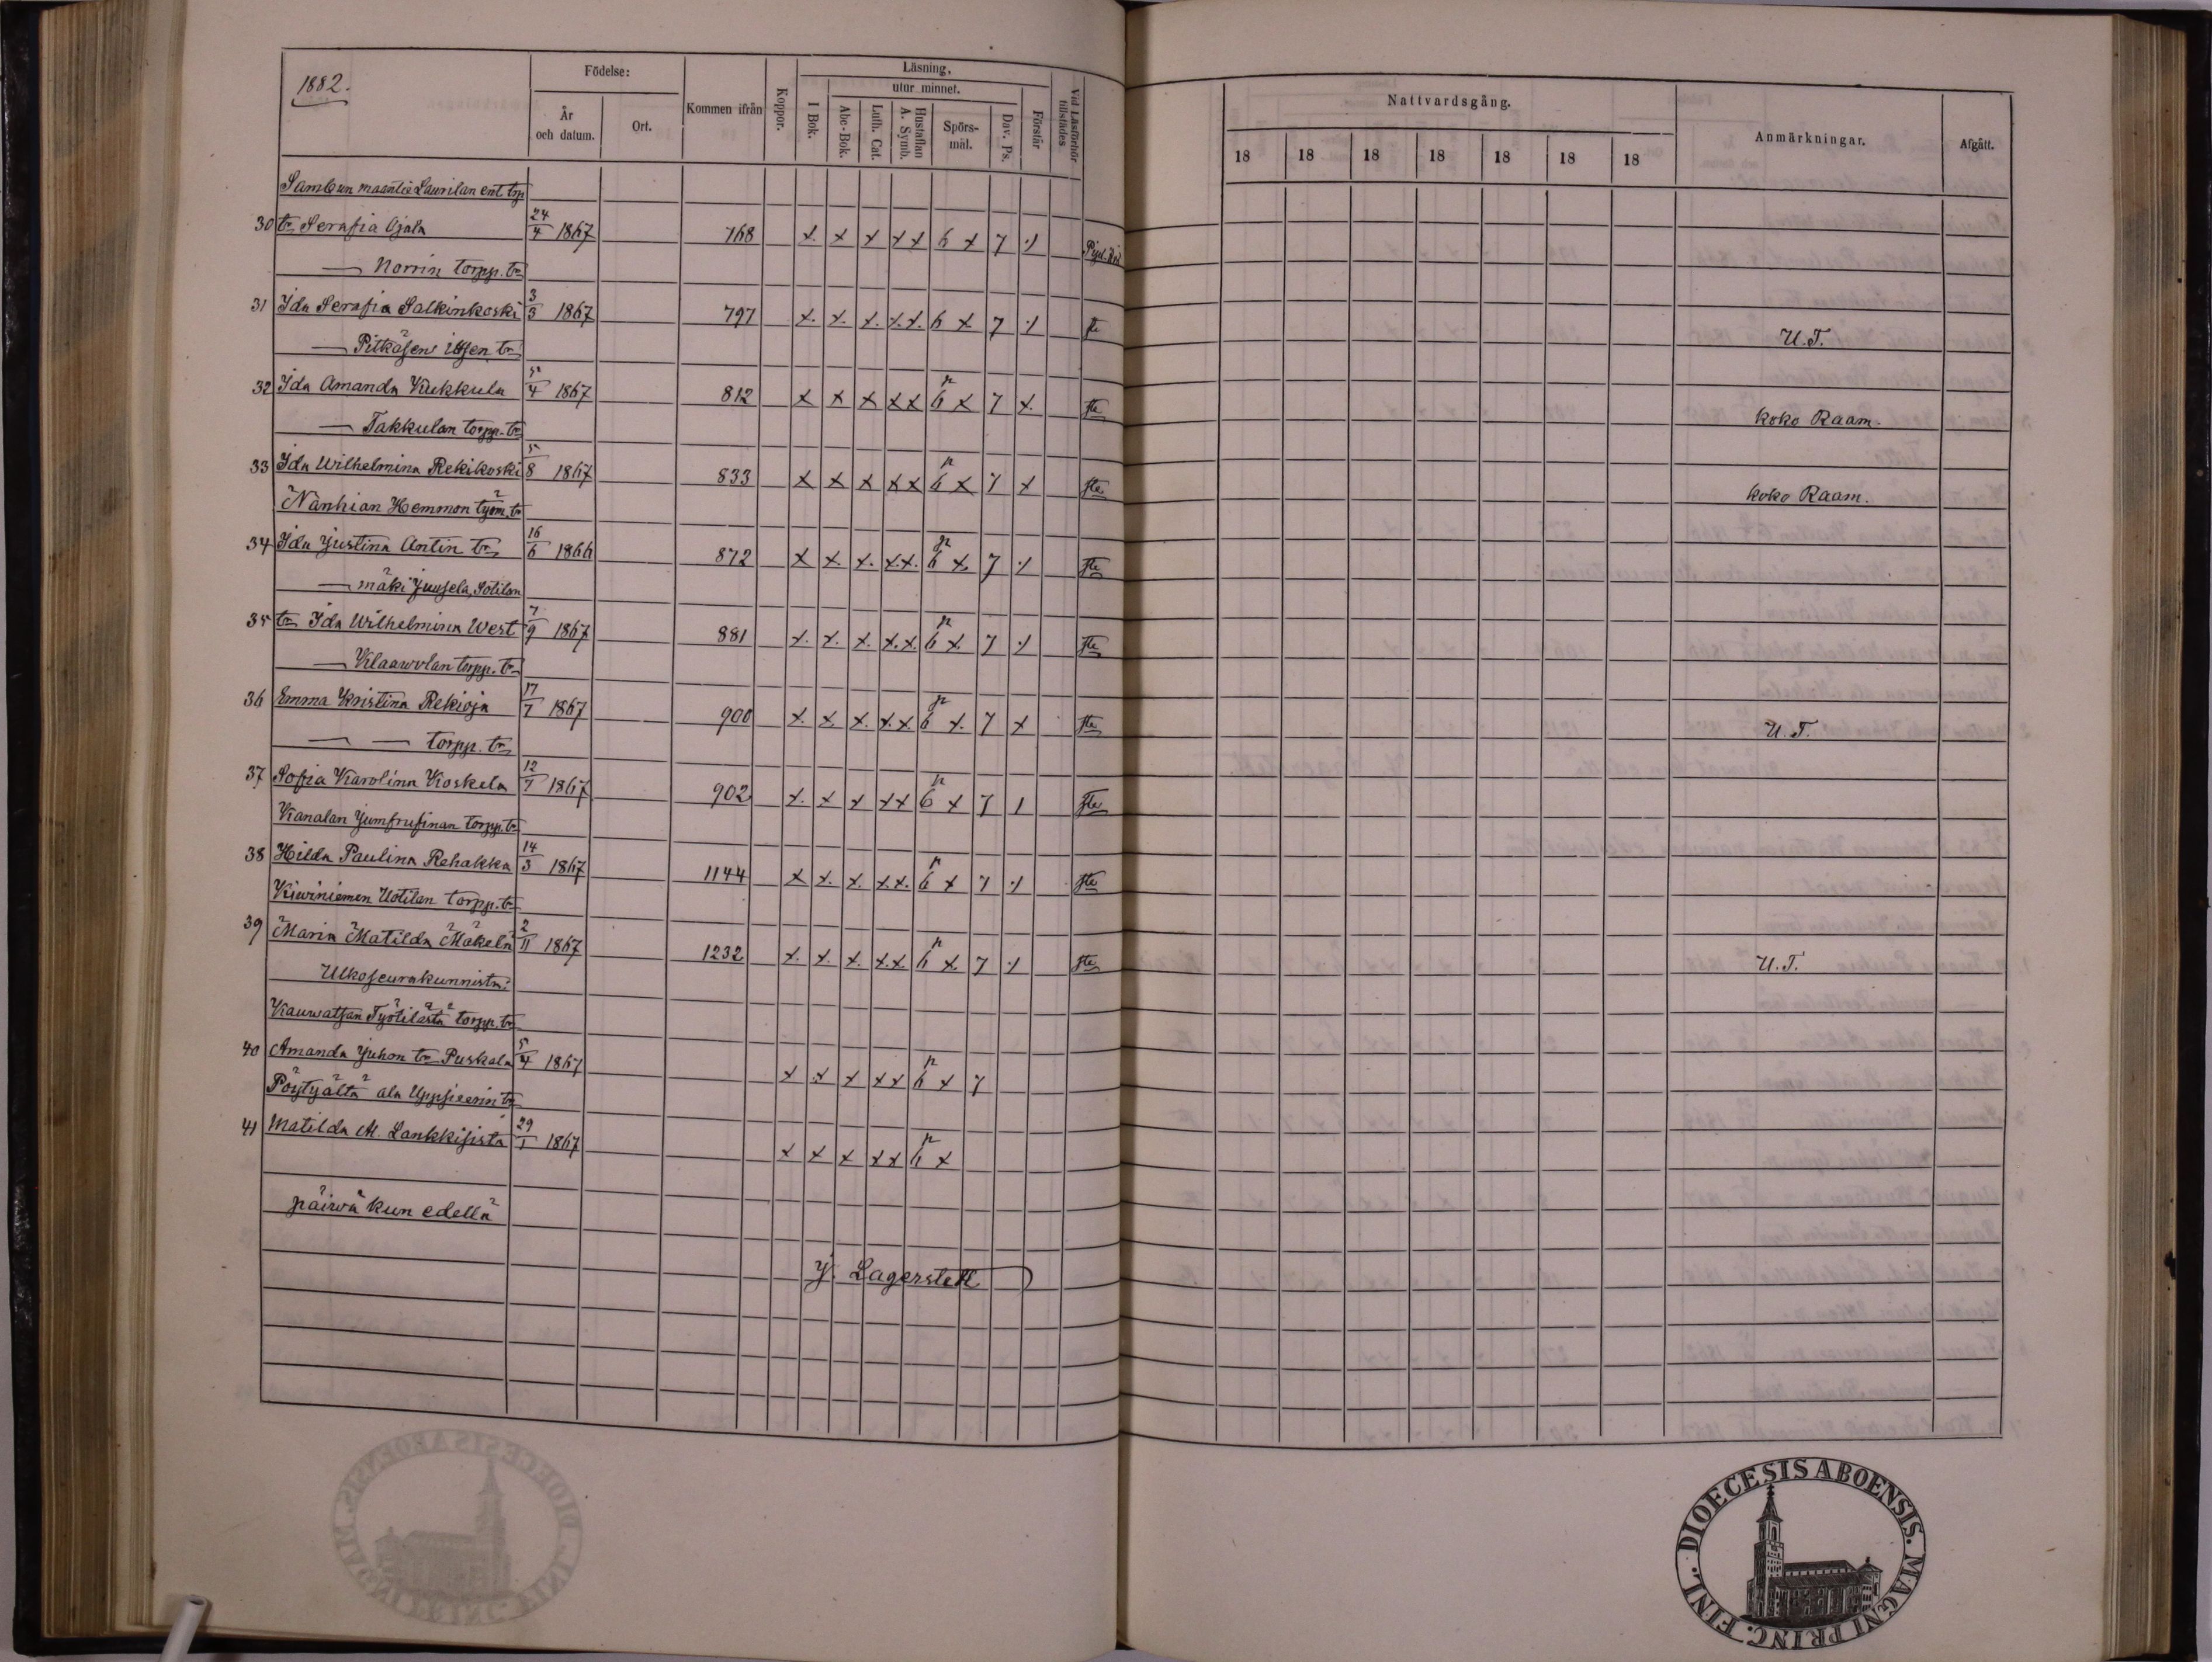 1882.
Födelse:
År och datum.
Ort.
Kommen ifrån
Koppor.
Läsning,
utur minnet.
I Bok.
Abc-Bok.
Luth. Cat.
Hustaflan A. Symb.
Spörs-mål.
Dav. Ps.
Förstår
Vid Läsförhör tillstädes
Nattvardsgång.
18 18 18 18 18 18 18
Anmärkningar.
Afgått.
Sambun maantie Laurilan ent. torp
30 tr Serafia Ojala 24/4 1867 768 x. x x x x 6 x 7 ./.
— Norrin torpp. tr
31 Ida Serafia Salkinkoski 3/3 1867 797 x. x. x. x. x. 6 x 7 ./. U. T.
— Pitkäsen itsen tr
32 Ida Amanda Kukkula 5/4 1867 812 x x x x x 6 x 7 x. koko Raam.
— Takkulan torpp. tr
33 Ida Wilhelmina Rekikoski 5/8 1867 833 x x x x x 6 x 7 x koko Raam.
Nanhian Hemmon työm. tr
34 Ida Justina Antin tr 16/6 1866 872 x x. x. x. x. 6 x. 7 ./.
— mäki Juusela, Sotilan
35 tr Ida Wilhelmina West 7/9 1867 881 x. x. x. x. x. 6 x. 7 ./.
— Klaawolan torpp. tr
36 Emma Kristina Rekioja 17/7 1867 900 x. x. x. x. x. 6 x. 7 x U. T.
— — torpp. tr
37 Sofia Karolina Koskela 12/7 1867 902 x. x x x x 6 x 7 1
Kanalan Jumfrusinan torpp. tr
38 Hilda Paulina Rehakka 14/3 1867 1144 x x. x. x. x. 6 x 7 ./.
Kiwiniemen Uotilan torpp. tr
39 Maria Matilda Mäkelä 2/11 1867 1232 x. x. x. x. x. 6 x. 7 ./. U. T.
Ulkoseurakunnista:
Kauwatsan Työtilästä torpp. tr
40 Amanda Juhon tr Puskala 5/4 1867 x x x x x 6 x 7
Pöytyältä ala Uppsieerin tr
41 Matilda M. Lankkisista 29/1 1867 x x x x x 6 x
päiwä kun edellä
J. Lagerstett
DIOECESIS ABOENSIS. MAGNI PRINC. FINL.